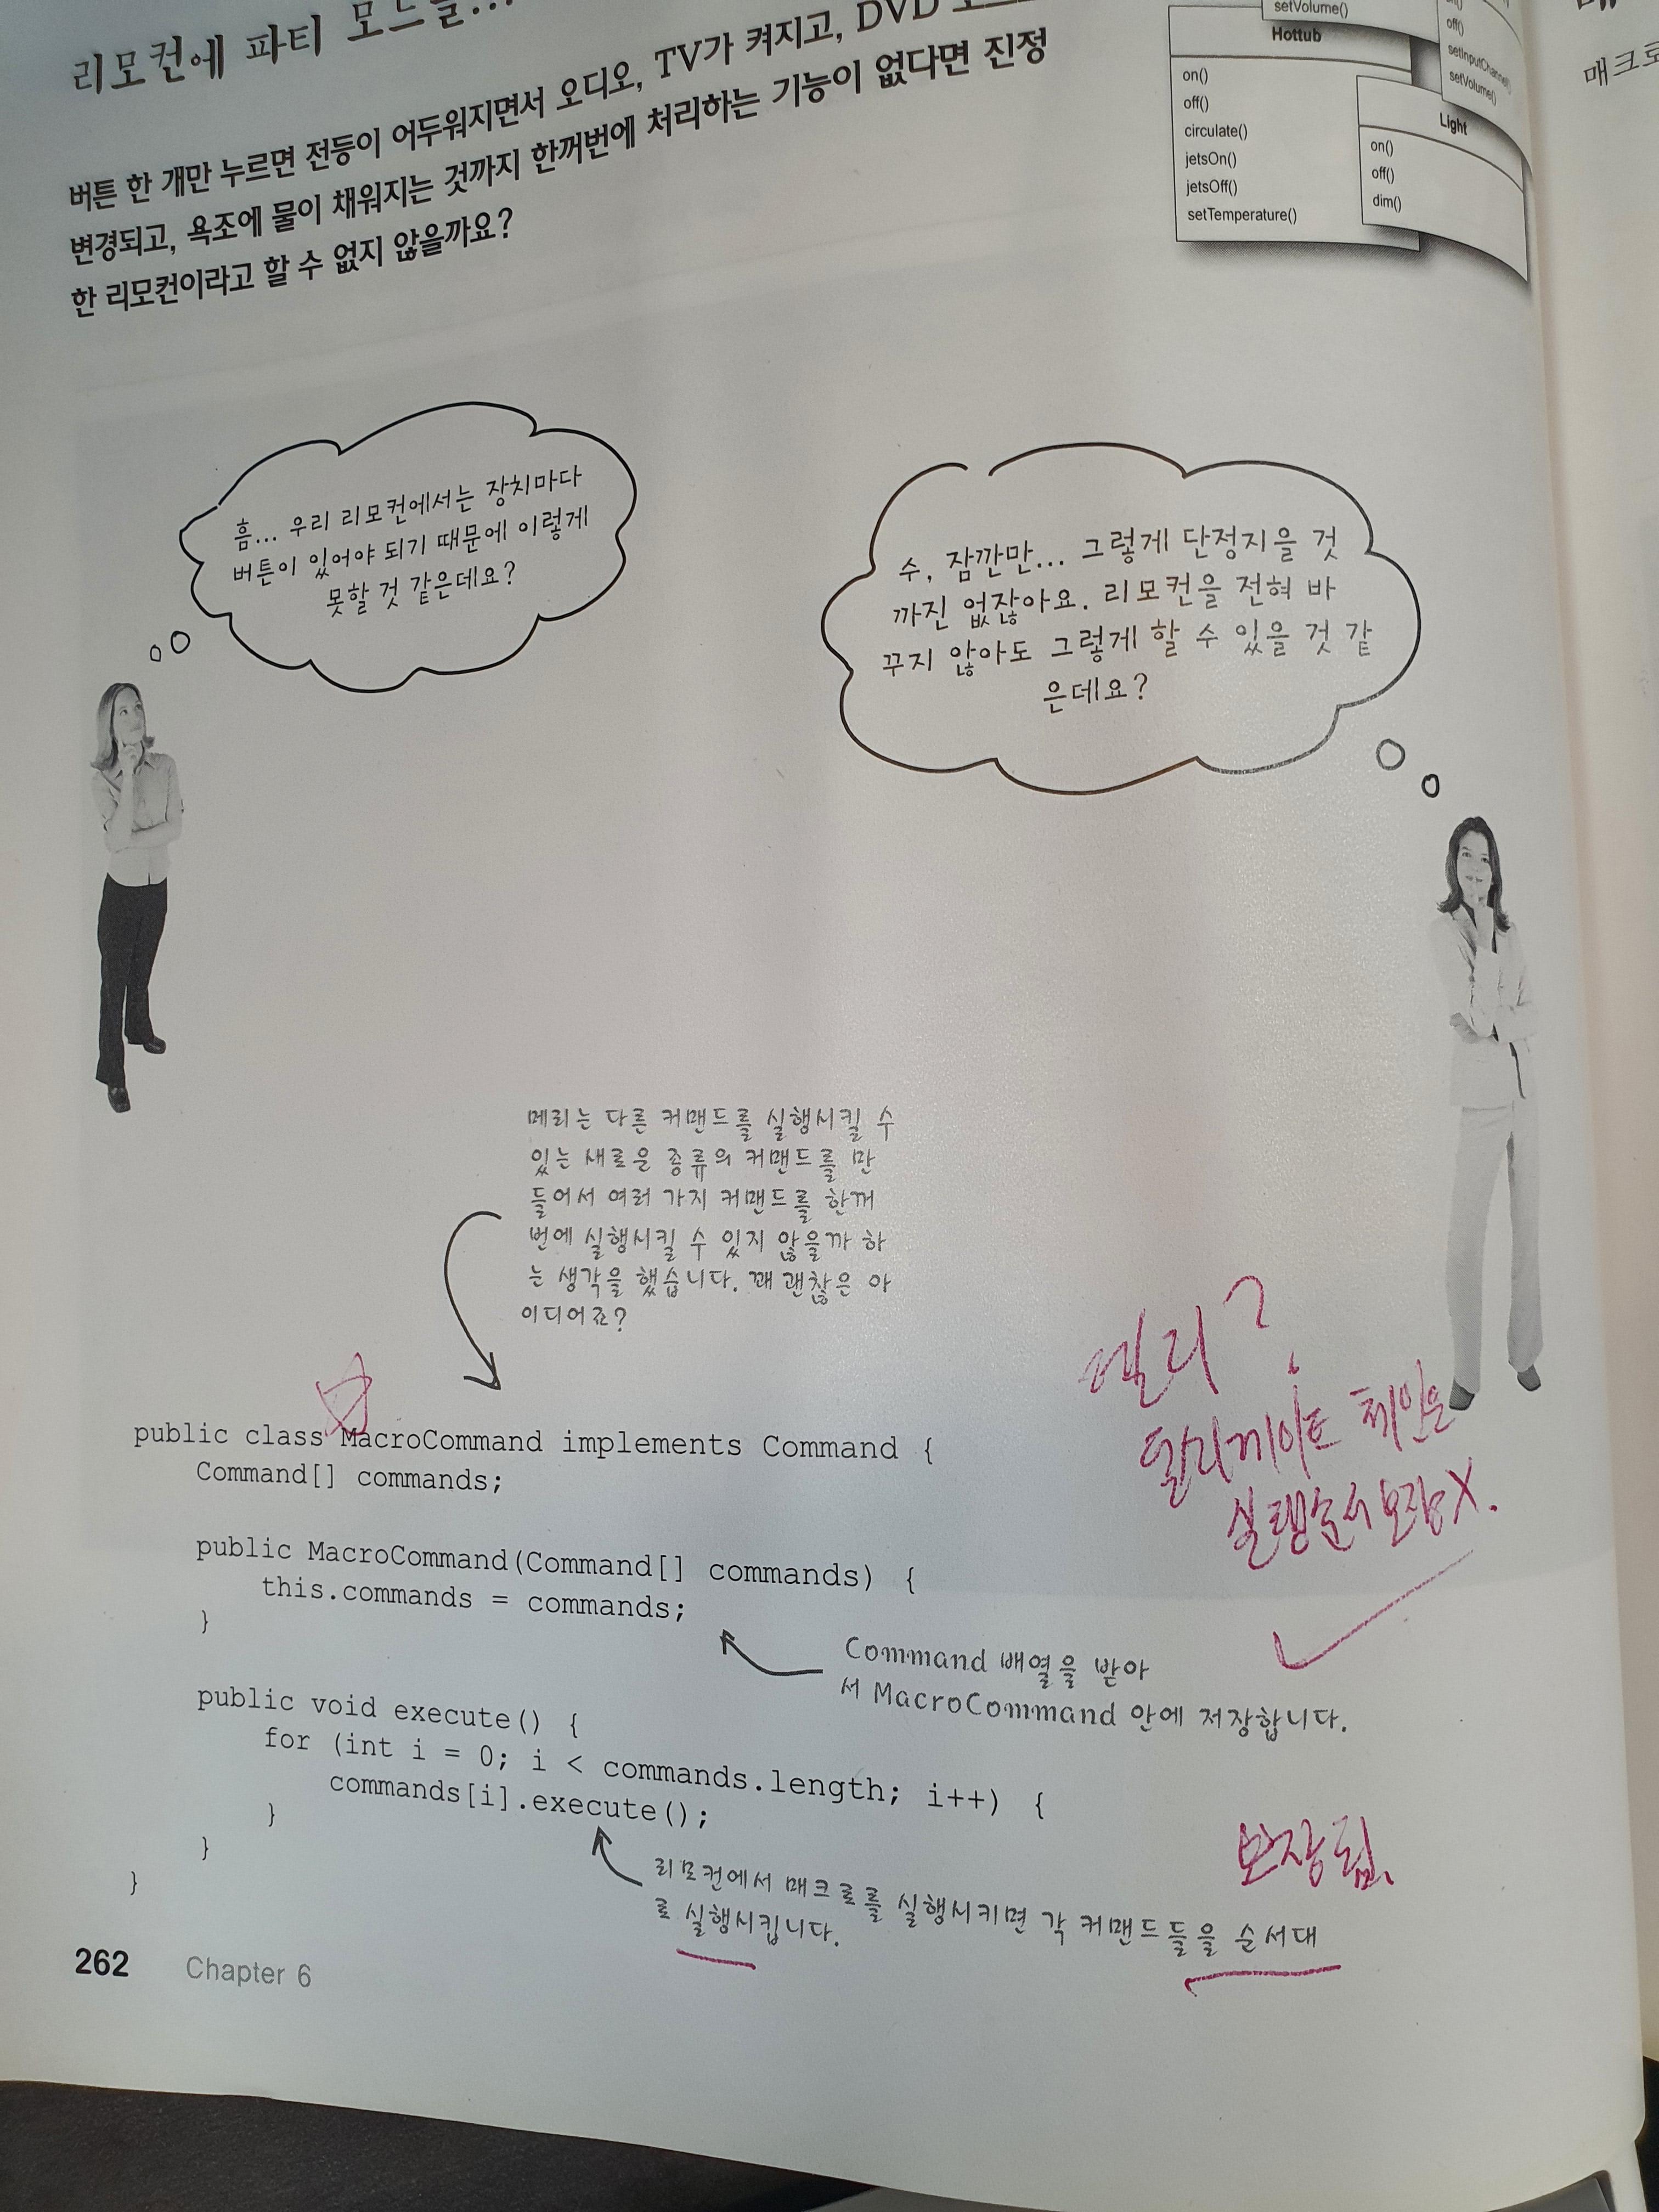 리모컨에 파티 모드를...
버튼 한 개만 누르면 전등이 어두워지면서 오디오, TV가 켜지고, DVD
변경되고, 욕조에 물이 채워지는 것까지 한꺼번에 처리하는 기능이 없다면 진정
한 리모컨이라고 할 수 없지 않을까요?
setVolume()
Hottub
on()
off()
circulate()
jetsOn()
jetsOff()
setTemperature()
off()
setInputChannel()
setVolume()
Light
on()
off()
dim()
매크로
흠... 우리 리모컨에서는 장치마다
버튼이 있어야 되기 때문에 이렇게
못할 것 같은데요?
수, 잠깐만... 그렇게 단정지을 것
까진 없잖아요. 리모컨을 전혀 바
꾸지 않아도 그렇게 할 수 있을 것 같
은데요?
메리는 다른 커맨드를 실행시킬 수
있는 새로운 종류의 커맨드를 만
들어서 여러 가지 커맨드를 한꺼
번에 실행시킬 수 있지 않을까 하
는 생각을 했습니다. 꽤 괜찮은 아
이디어죠?
public class MacroCommand implements Command {
Command[] commands;
public MacroCommand(Command[] commands) {
this.commands = commands;
}
Command 배열을 받아
서 MacroCommand 안에 저장합니다.
public void execute() {
for (int i = 0; i < commands.length; i++) {
commands[i].execute();
}
}
}
리모컨에서 매크로를 실행시키면 각 커맨드들을 순서대
로 실행시킵니다.
델리?
델리게이트 체인은
실행순서 보장X.
보장됨.
262 Chapter 6